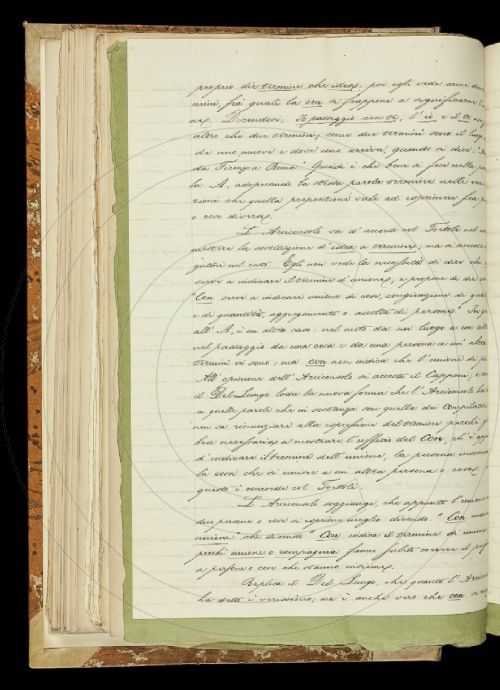 proprio dir termine che idea; poi egli vede come due
mini, fra quali la con si frappone a significarne l'
Discendere: Io passeggio con te, l'io e il te
altro che due termini; come due termini sono il luogo
da cui muove e dove uno arriva, quando si dice:
da Firenze a Roma". Quindi è che bene si fece nella
la A, adoperando la stessa parola termine nelle
zioni che quella preposizione vale ad esprimere fra
e cosi diverse.
L'Arciconsolo va d'accordo col Tortoli nel non
mettere la sostituzione d'idea a termine; ma si accosta
nel resto. Egli non vede la necessità di dire che
serve a indicare il termine d'unione, e propone di dir
"Con serve a indicare unione di cose, congiunzione di
e di quantità, aggregamento o accolta di persone". In
all'A, è un altro caso: nel moto da un luogo a un altro
nel passaggio da una cosa e da una persona a un'altra
termini vi sono; ma con non indica che l'unione di
All'opinione dell'Arciconsolo si accosta il Capponi;
il Del Lungo loda la nuova forma che l'Arciconsolo ha
a quelle parole che in sostanza son quelle dei Compilatori
non sa rinunziare alla espressione del termine perchè
bra necessario a mostrare l'uffizio del Con, ch'è
d'indicare il termine dell'unione, la persona
la cosa che si unisce a un altra persona o cosa
questo è concorde col Tortoli.
L'Arciconsolo soggiunge, che appunto l'unione
due persone o cose si esprime meglio dicendo "Con indica
unione" che dicendo "Con indica il termine di unione
perchè unione o compagnia fanno subito correre il
a persone o cose che stanno insieme.
Replica il Del Lungo, che quanto l'
ha detto è verissimo; ma è anche vero che con si